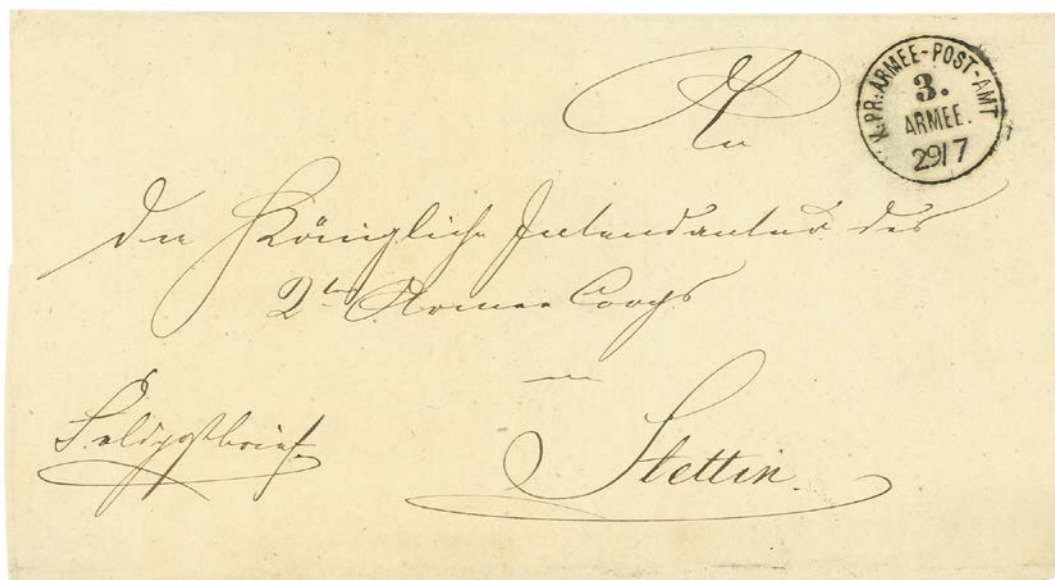 K. PR: ARMEE-POST-AMT
3.
ARMEE.
29/7
An
die Königliche Intendantur des
2ten Armee Corps
in
Stettin.
Feldpostbrief.